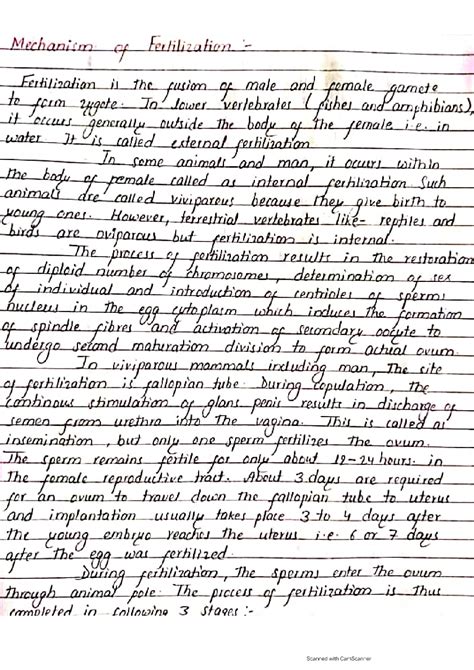 Mechanism of Fertilization :-
Fertilization is the fusion of male and female gamete
to form zygote. In lower vertebrates (fishes and amphibians),
it occurs generally outside the body of the female i.e. in
water. It is called external fertilization
In some animals and man, it occurs within
the body of female called as internal fertilization Such
animals are called viviparous because they give birth to
young ones. However, terrestrial vertebrates like- reptiles and
birds are oviparous but fertilization is internal.
The process of fertilization results in the restoration
of diploid number of chromosomes, determination of sex
of individual and introduction of centrioles of sperms
nucleus in the egg cytoplasm which induces the formation
of spindle fibres and activation of secondary oocyte to
undergo second maturation division to form actual ovum.
In viviparous mammals including man, The site
of fertilization is fallopian tube. During copulation, the
continous stimulation of glans penis results in discharge of
semen from urethra into the vagina. This is called as
insemination, but only one sperm fertilizes the ovum.
The sperm remains fertile for only about 12-24 hours. in
The female reproductive tract. About 3 days are required
for an ovum to travel down the fallopian tube to uterus
and implantation usually takes place 3 to 4 days after
the young embryo reaches the uterus i.e. 6 or 7 days
after the egg was fertilized.
During fertilization, The sperms enter the ovum
through animal pole. The process of fertilization is thus
completed in following 3 stages :-
Scanned with CamScanner